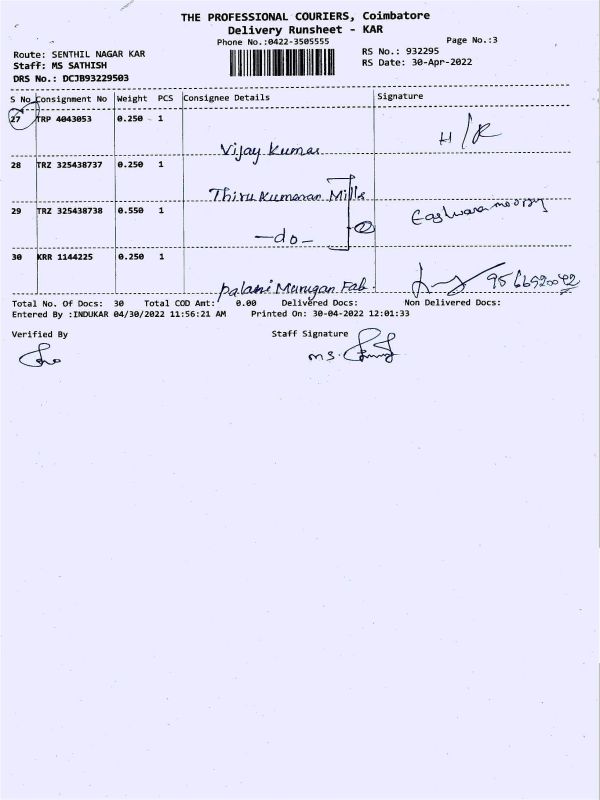 THE PROFESSIONAL COURIERS, Coimbatore
Delivery Runsheet - KAR
Phone No.:0422-3505555
Page No.:3
Route: SENTHIL NAGAR KAR
RS No.: 932295
Staff: MS SATHISH
RS Date: 30-Apr-2022
DRS No.: DCJB93229503
S No Consignment No Weight PCS Consignee Details Signature
27 TRP 4043053 0.250 1
Vijay Kumar H/R
28 TRZ 325438737 0.250 1
Thirukumaran Mills
29 TRZ 325438738 0.550 1
-do- 2
30 KRR 1144225 0.250 1
Palani Murugan Fab.
Total No. Of Docs: 30 Total COD Amt: 0.00 Delivered Docs: Non Delivered Docs:
Entered By :INDUKAR 04/30/2022 11:56:21 AM Printed On: 30-04-2022 12:01:33
Verified By Staff Signature